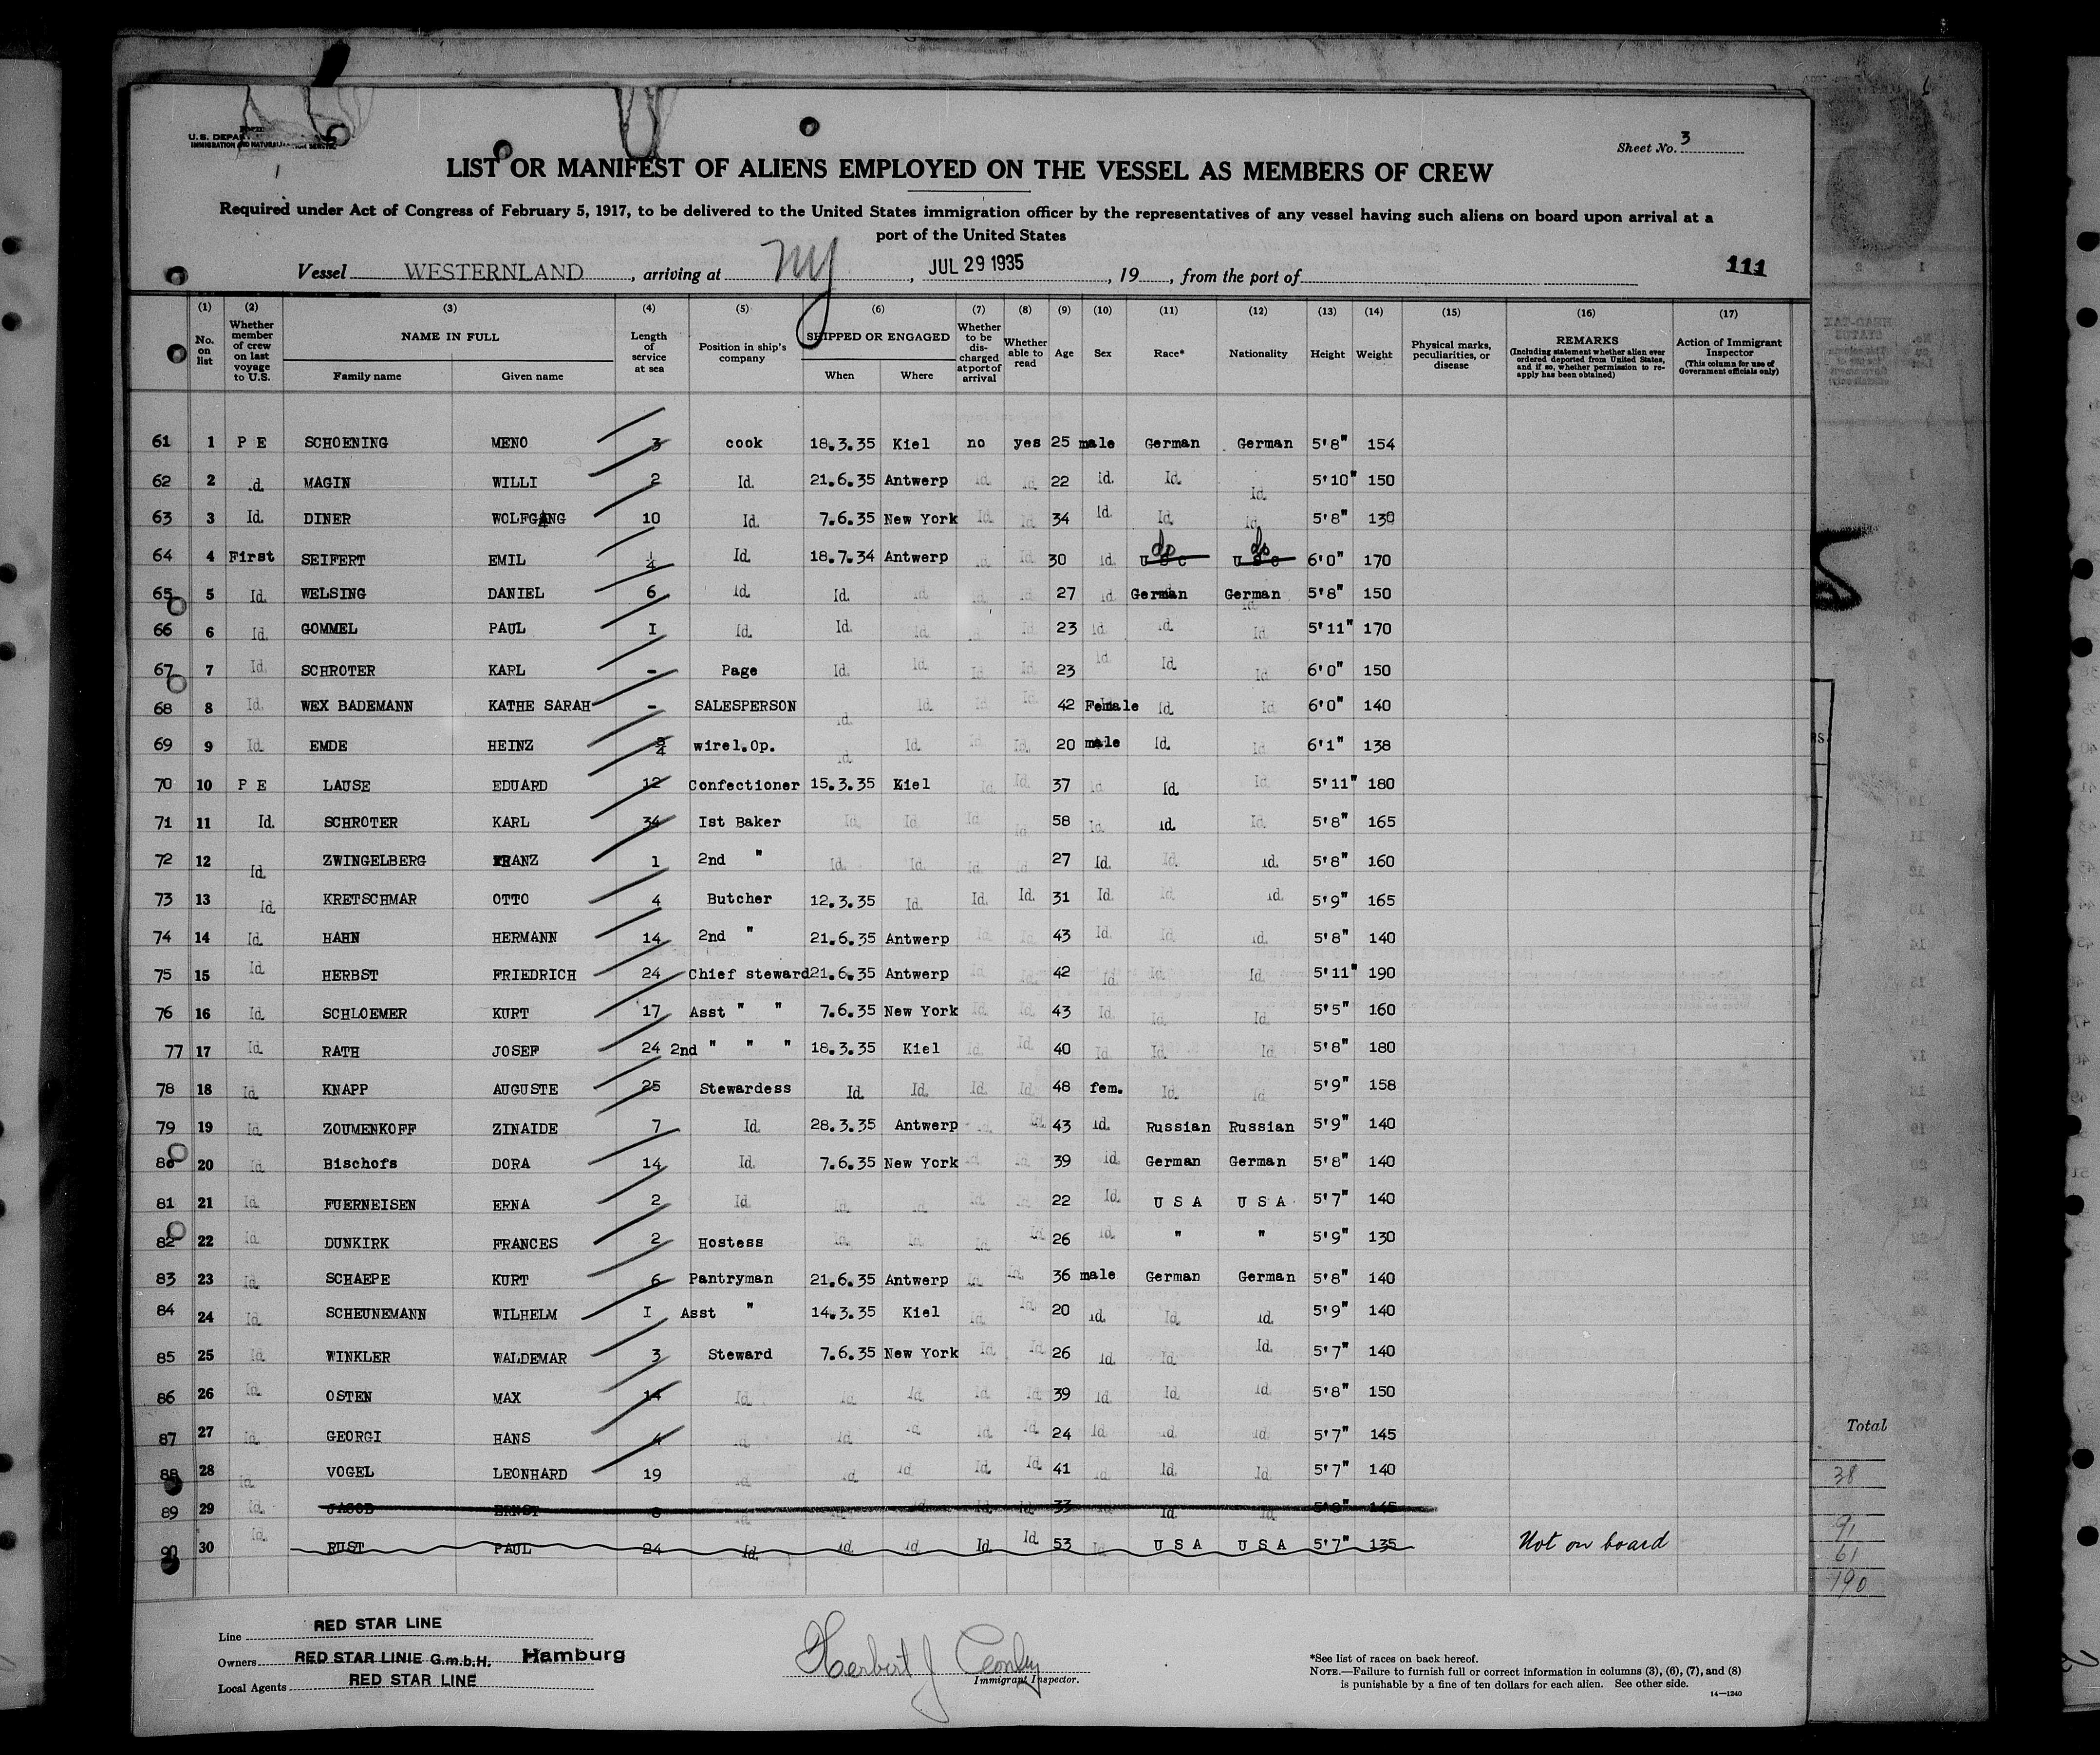 U.S. DEPA
IMMIGRATION AND NATURAL
Sheet No. 3
LIST OR MANIFEST OF ALIENS EMPLOYED ON THE VESSEL AS MEMBERS OF CREW
Required under Act of Congress of February 5, 1917, to be delivered to the United States immigration officer by the representatives of any vessel having such aliens on board upon arrival at a
port of the United States
Vessel WESTERNLAND, arriving at NY, JUL 29 1935, 19, from the port of
111
(1) (2) (3) (4) (5) (6) (7) (8) (9) (10) (11) (12) (13) (14) (15) (16) (17)
No. on list
Whether member of crew on last voyage to U.S.
NAME IN FULL
Family name Given name
Length of service at sea
Position in ship's company
SHIPPED OR ENGAGED
When Where
Whether to be discharged at port of arrival
Whether able to read
Age Sex Race* Nationality Height Weight
Physical marks, peculiarities, or disease
REMARKS
(Including statement whether alien ever ordered deported from United States, and if so, whether permission to re-apply has been obtained)
Action of Immigrant Inspector
(This column for use of Government officials only)
61 1 P E SCHOENING MENO 3 cook 18.3.35 Kiel no yes 25 male German German 5'8" 154
62 2 .d. MAGIN WILLI 2 Id. 21.6.35 Antwerp Id. Id. 22 Id. Id. Id. 5'10" 150
63 3 Id. DINER WOLFGANG 10 Id. 7.6.35 New York Id. Id. 34 Id. Id. Id. 5'8" 130
64 4 First SEIFERT EMIL 1/4 Id. 18.7.34 Antwerp Id. Id. 30 Id. do do 6'0" 170
65 5 Id. WELSING DANIEL 6 Id. Id. Id. Id. 27 Id. German German 5'8" 150
66 6 Id. GOMMEL PAUL I Id. Id. Id. Id. Id. 23 Id. Id. Id. 5'11" 170
67 7 Id. SCHROTER KARL - Page Id. Id. Id. Id. 23 Id. Id. Id. 6'0" 150
68 8 Id. WEX BADEMANN KATHE SARAH - SALESPERSON Id. Id. Id. Id. 42 Female Id. Id. 6'0" 140
69 9 Id. EMDE HEINZ 3/4 wirel.Op. Id. Id. Id. Id. 20 male Id. Id. 6'1" 138
70 10 P E LAUSE EDUARD 12 Confectioner 15.3.35 Kiel Id. Id. 37 Id. Id. Id. 5'11" 180
71 11 Id. SCHROTER KARL 34 Ist Baker Id. Id. Id. Id. 58 Id. Id. Id. 5'8" 165
72 12 Id. ZWINGELBERG FRANZ 1 2nd " Id. Id. Id. Id. 27 Id. Id. Id. 5'8" 160
73 13 Id. KRETSCHMAR OTTO 4 Butcher 12.3.35 Id. Id. Id. 31 Id. Id. Id. 5'9" 165
74 14 Id. HAHN HERMANN 14 2nd " 21.6.35 Antwerp Id. Id. 43 Id. Id. Id. 5'8" 140
75 15 Id. HERBST FRIEDRICH 24 Chief steward 21.6.35 Antwerp 42 Id. Id. Id. 5'11" 190
76 16 Id. SCHLOEMER KURT 17 Asst " " 7.6.35 New York Id. Id. 43 Id. Id. Id. 5'5" 160
77 17 Id. RATH JOSEF 24 2nd " " " 18.3.35 Kiel Id. Id. 40 Id. Id. Id. 5'8" 180
78 18 Id. KNAPP AUGUSTE 25 Stewardess Id. Id. Id. Id. 48 fem. Id. Id. 5'9" 158
79 19 Id. ZOUMENKOFF ZINAIDE 7 Id. 28.3.35 Antwerp Id. 43 Id. Russian Russian 5'9" 140
80 20 Id. Bischofs DORA 14 Id. 7.6.35 New York Id. Id. 39 Id. German German 5'8" 140
81 21 Id. FUERNEISEN ERNA 2 Id. Id. Id. Id. Id. 22 Id. U S A U S A 5'7" 140
82 22 Id. DUNKIRK FRANCES 2 Hostess Id. Id. Id. Id. 26 Id. " " 5'9" 130
83 23 Id. SCHAEPE KURT 6 Pantryman 21.6.35 Antwerp Id. Id. 36 male German German 5'8" 140
84 24 Id. SCHEUNEMANN WILHELM I Asst " 14.3.35 Kiel Id. Id. 20 Id. Id. Id. 5'9" 140
85 25 Id. WINKLER WALDEMAR 3 Steward 7.6.35 New York Id. Id. 26 Id. Id. Id. 5'7" 140
86 26 Id. OSTEN MAX 14 Id. Id. Id. Id. Id. 39 Id. Id. Id. 5'8" 150
87 27 Id. GEORGI HANS 4 Id. Id. Id. Id. Id. 24 Id. Id. Id. 5'7" 145
88 28 Id. VOGEL LEONHARD 19 Id. Id. Id. Id. Id. 41 Id. Id. Id. 5'7" 140
89 29 Id. JACOB ERNST 8 Id. Id. Id. Id. Id. 33 Id. Id. Id. 5'8" 145
90 30 Id. RUST PAUL 24 Id. Id. Id. Id. Id. 53 Id. U S A U S A 5'7" 135 Not on board
Total
38
91
61
190
Line RED STAR LINE
Owners RED STAR LINIE G.m.b.H. Hamburg
Local Agents RED STAR LINE
Herbert J
Immigrant Inspector.
*See list of races on back hereof.
NOTE.—Failure to furnish full or correct information in columns (3), (6), (7), and (8)
is punishable by a fine of ten dollars for each alien. See other side.
14—1240